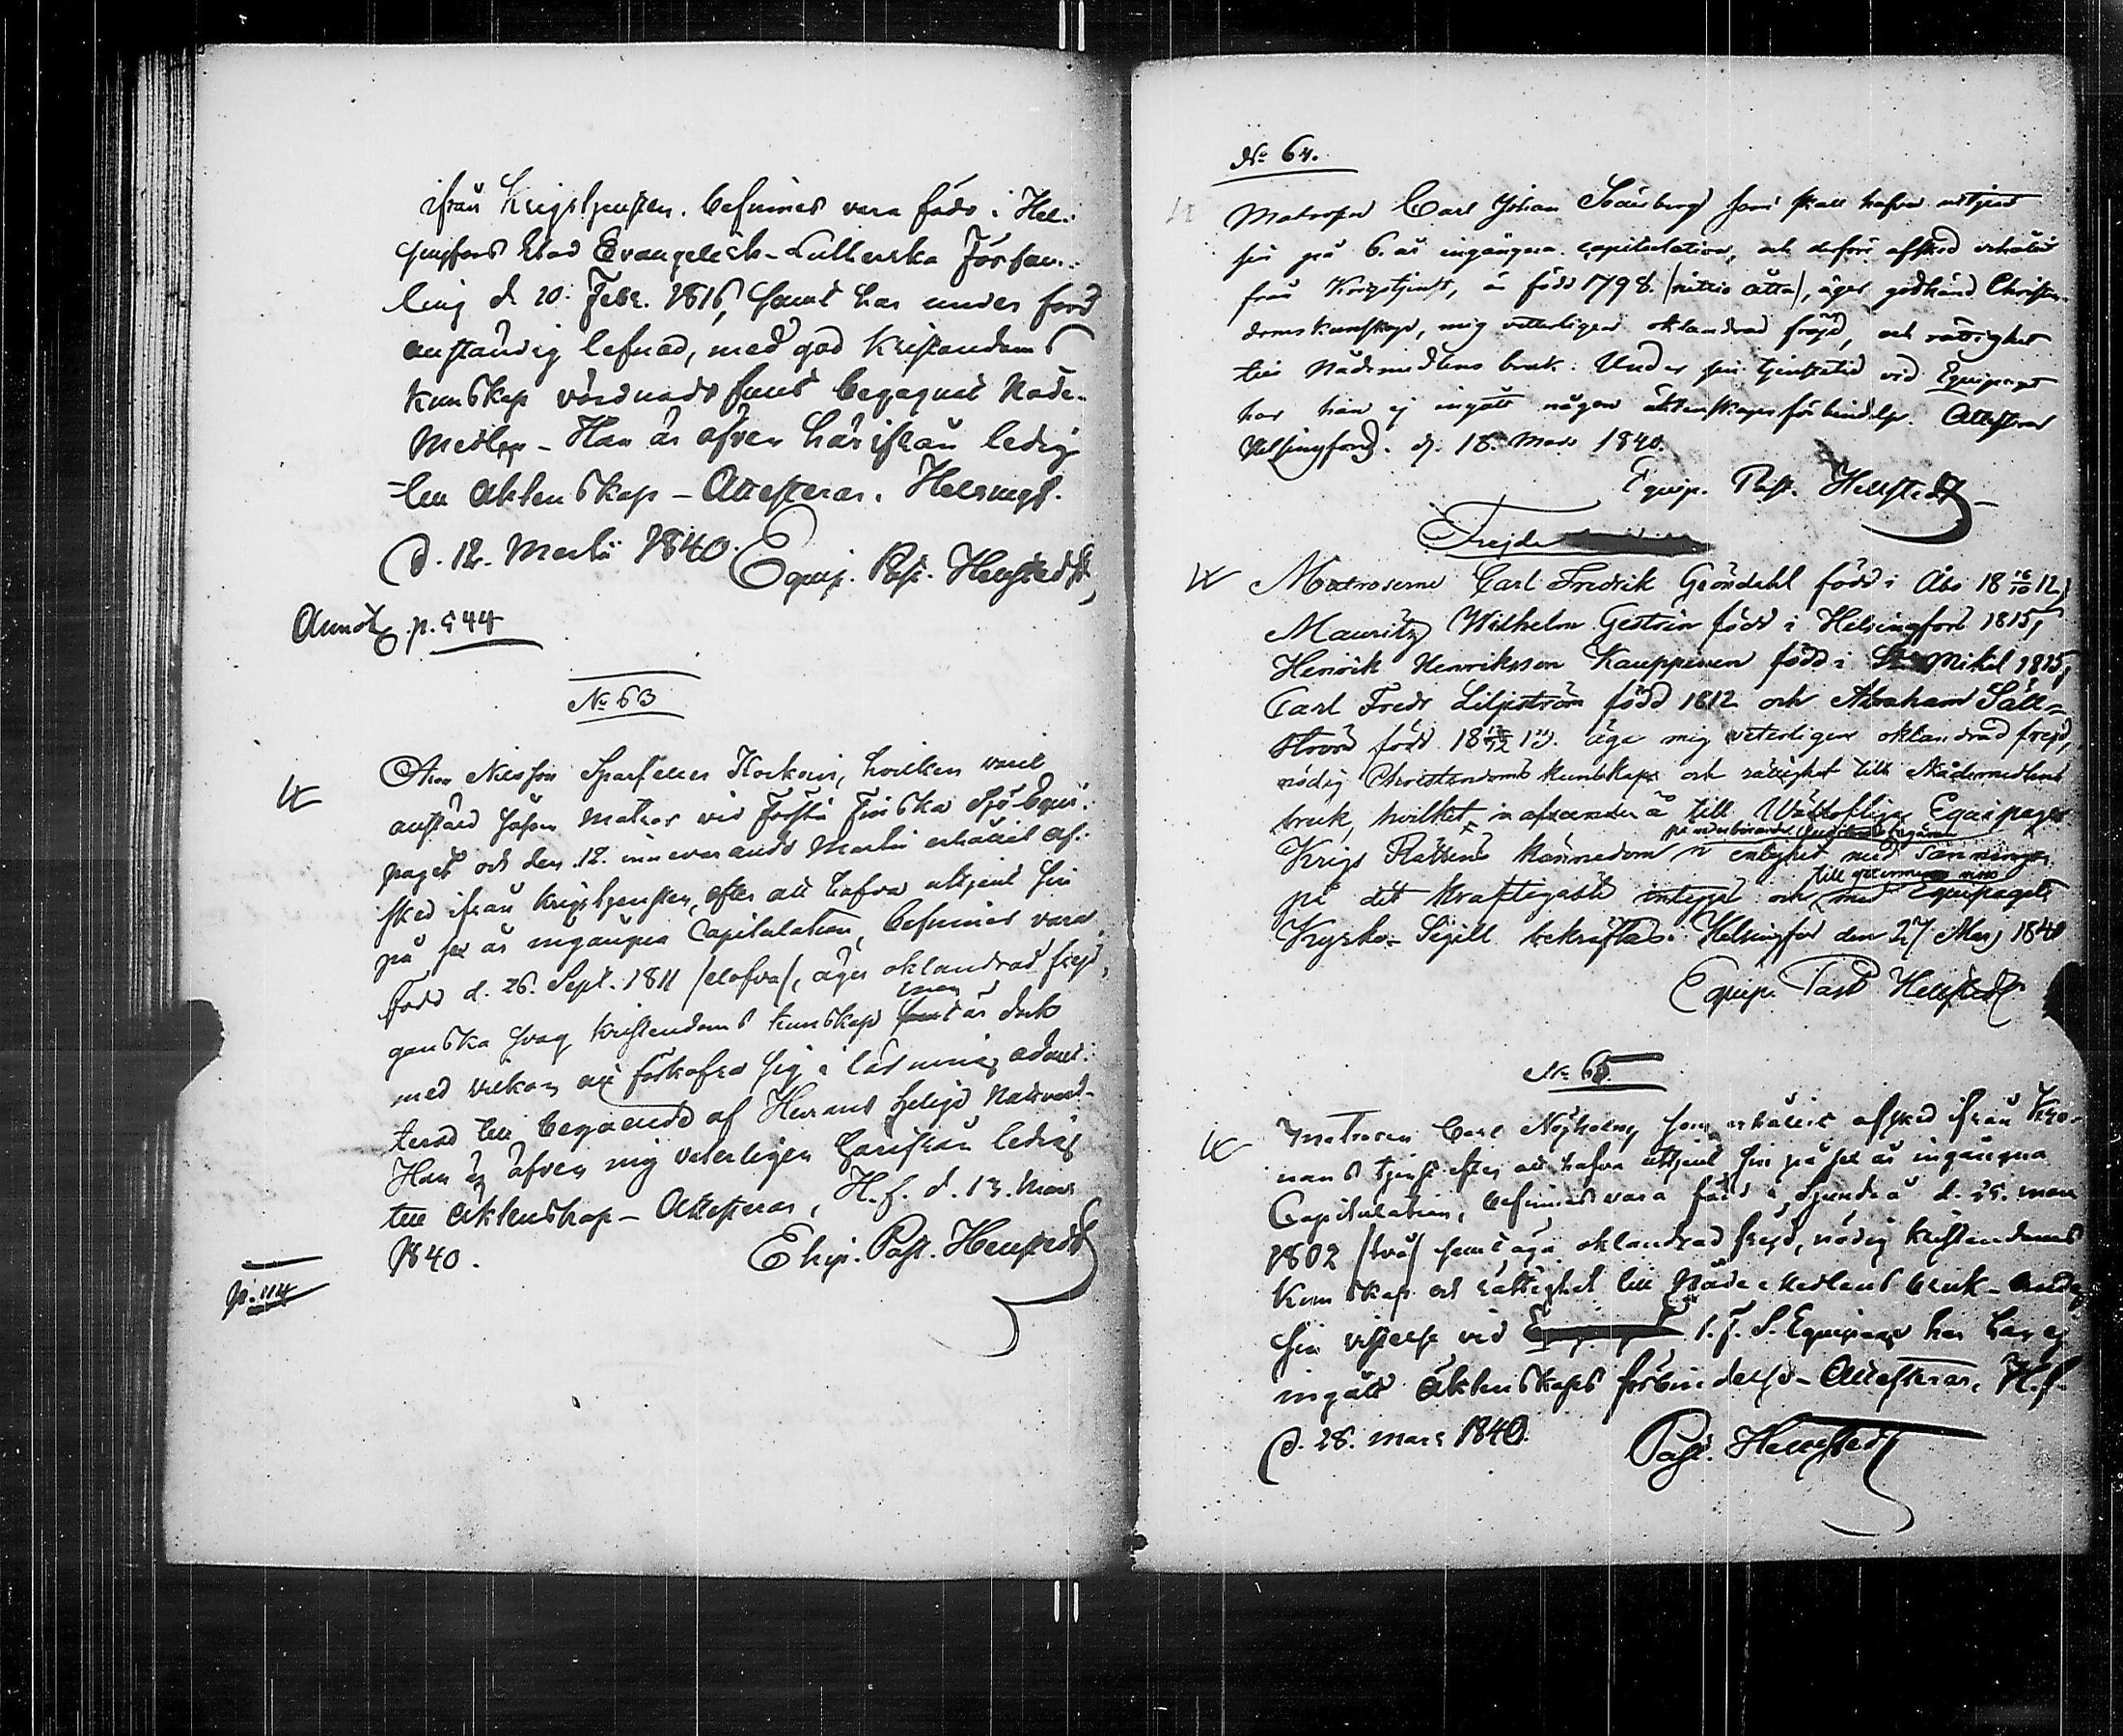 ifrån Krigstjensten, befinnes vara född i Hel-
singfors Stad Evangelisk-Lutterska Försam-
ling d. 20. Febr. 1816, samt har under ford
anständig lefnad, med god Kristendoms
kunskap vördnadsfullt begagnat Nåde-
Medlen - Han är äfven härifrån ledig
till Äktenskap - Attesteras. Helsingf.
d. 12. Martii 1840. Equip. Past. Hellstedt
Annot. p. 544
No 63
Nilsson Korkoin, hvilken varit
anstäld såsom Matros vid Första Finska Sjö Equi-
paget och den 12. innevarande Martii erhållit af-
sked ifrån krigstjensten, efter att hafva uttjent sin
på sex år ingångna Capitulation, befinnes vara
född d. 26. Sept. 1811 /elofva/, äger oklandrad frejd,
ganska svag kristendoms kunskap men är dock
med vilkor att förkofra sig i läsning admit-
terad till begående af Herrans heliga Nattvard-
Han är äfven mig veterligen härifrån ledig
till äktenskap - Attesteras, H.f. d. 13. Mars
1840. Ekip. Past. Hellstedt
p. 114
No 64.
Matrosen Carl Johan som skall hafva uttjent
sin på 6. år ingångna capitulation, och derföre afsked erhållit
från Krigstjenst, är född 1798. /nittio åtta/, äger godkänd Christen-
doms kunskap, mig veterligen oklandrad frejd, och rättighet
till Nådemedlens bruk. Under sin tjenstetid vid Equipaget
har han ej ingått någon äktenskapsförbindelse. Attesteras
Helsingfors. d. 18. Mars 1840.
Equip. Past. Hellstedt
Frejde
Matroserne Carl Fredrik Gröndahl född i Åbo 18 16/10 12,
Mauritz Wilhelm Gestrin född i Helsingfors 1815,
Henrik Henriksson Kauppinen född i St Mikel 1815,
Carl Fredr Liljeström född 1812 och Abraham Säll-
ström född 18 /12 13. äga mig veterligen oklandrad frejd,
nödig Christendoms kunskap och rättighet till Nådemedlens
bruk, hvilket till Wällofliga Equipages
Krigs Rättens kännedom i enlighet med sanningen
på det kraftigaste och med Equipagets
Kyrko-Sigill bekräftas. Helsingfors den 27 Mars 1840
Equip. Past Hellstedt
No 65.
Matrosen Carl Nyholm, som erhållit afsked ifrån Kro-
nans tjenst efter att hafva uttjent sin på sex år ingångna
Capitulation, befinnes vara född i Sjundeå d. 25. mars
1802 /två/ samt äga oklandrad frejd, nödig kristendoms
kunskap och rättighet till Nåde Medlens bruk - Under
sin vistelse vid 1. F. S. Equipaget har han ej
ingått Äktenskaps förbindelse - Attesteras, H.f.
d. 28. Mars 1840. Past. Hellstedt